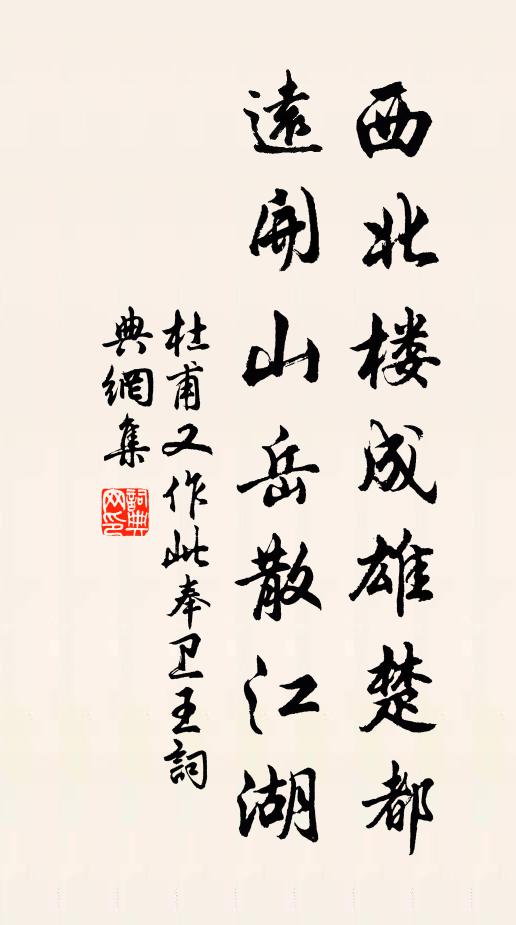 西北楼成雄楚都
遠開山岳散江湖
杜甫又作此奉卫王詞
典網集
詞典网印